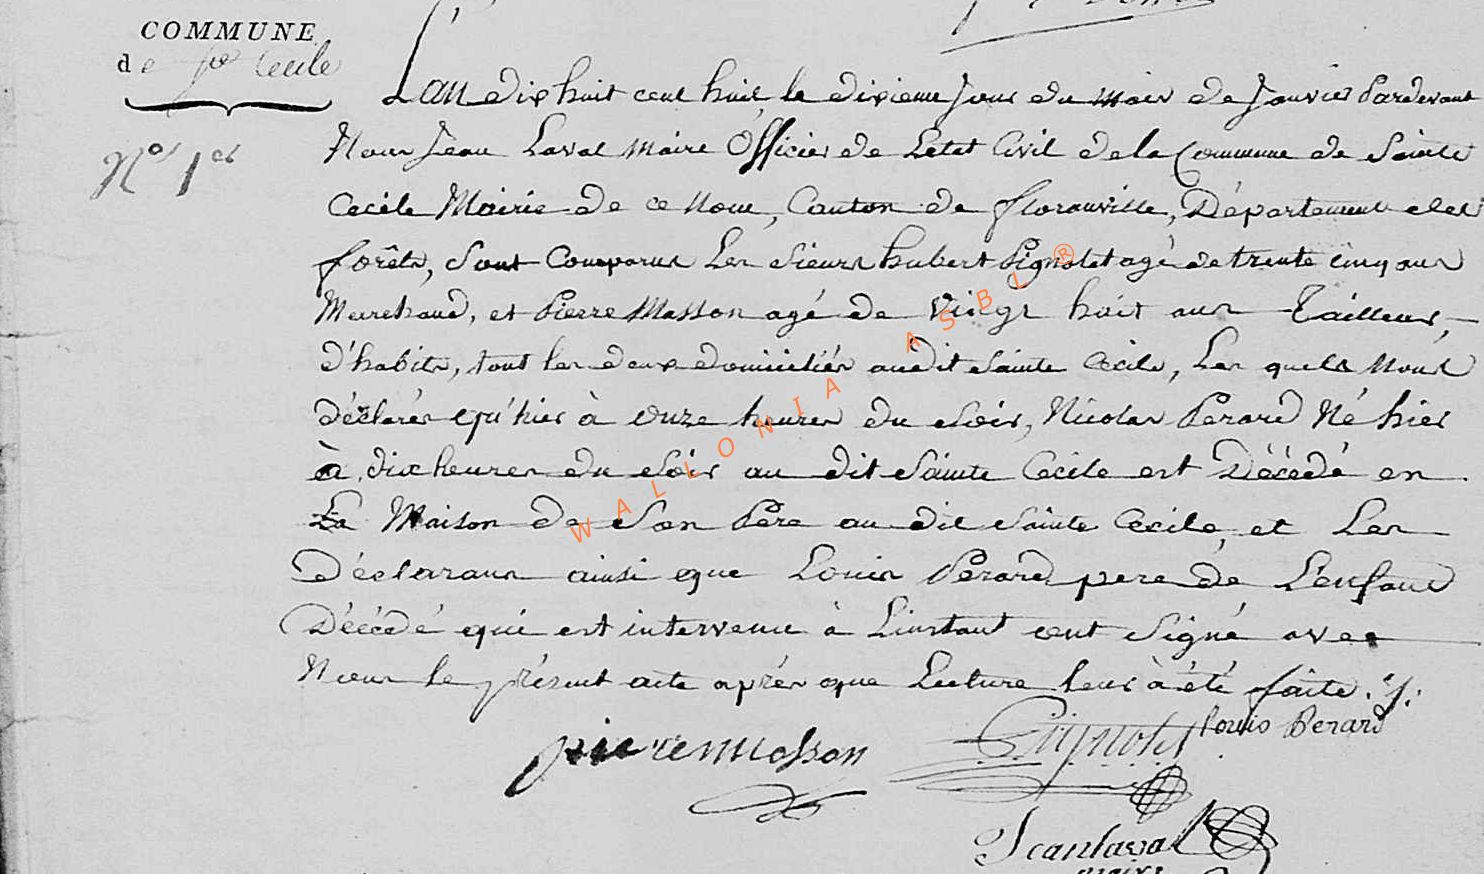 COMMUNE
de Ste Cecile
No 1er
L'an dix huit cent huit, le dixieme Jour du mois de Janvier Pardevant
Nous Jean Laval Maire Officier de L'etat Civil de la Commune de Sainte
Cecile Mairie de ce Nom, Canton de florenville, Département des
forêts, Sont Comparus Les Sieurs hubert Pignolet agé de trente cinq ans
Marchand, et Pierre Masson agé de Vingt huit ans Tailleur,
d'habits, tout les deux domiciliés audit Sainte Cécile, Les quels Nous
déclarés qu'hier à onze heures du Soir, Nicolas Perard Né hier
à dix heures du Soir au dit Sainte Cécile est Décédé en
La Maison de Son Pere au dit Sainte Cecile, et Les
Déclarans ainsi que Louis Perard pere de L'enfant
Décédé qui est intervenu à L'instant ont Signé avec
Nous le présent acte aprés que Lecture leur à été faite
Louis Perard
pierre masson
Pignolet
Jean laval
maire
WALLONIA ASBL ®